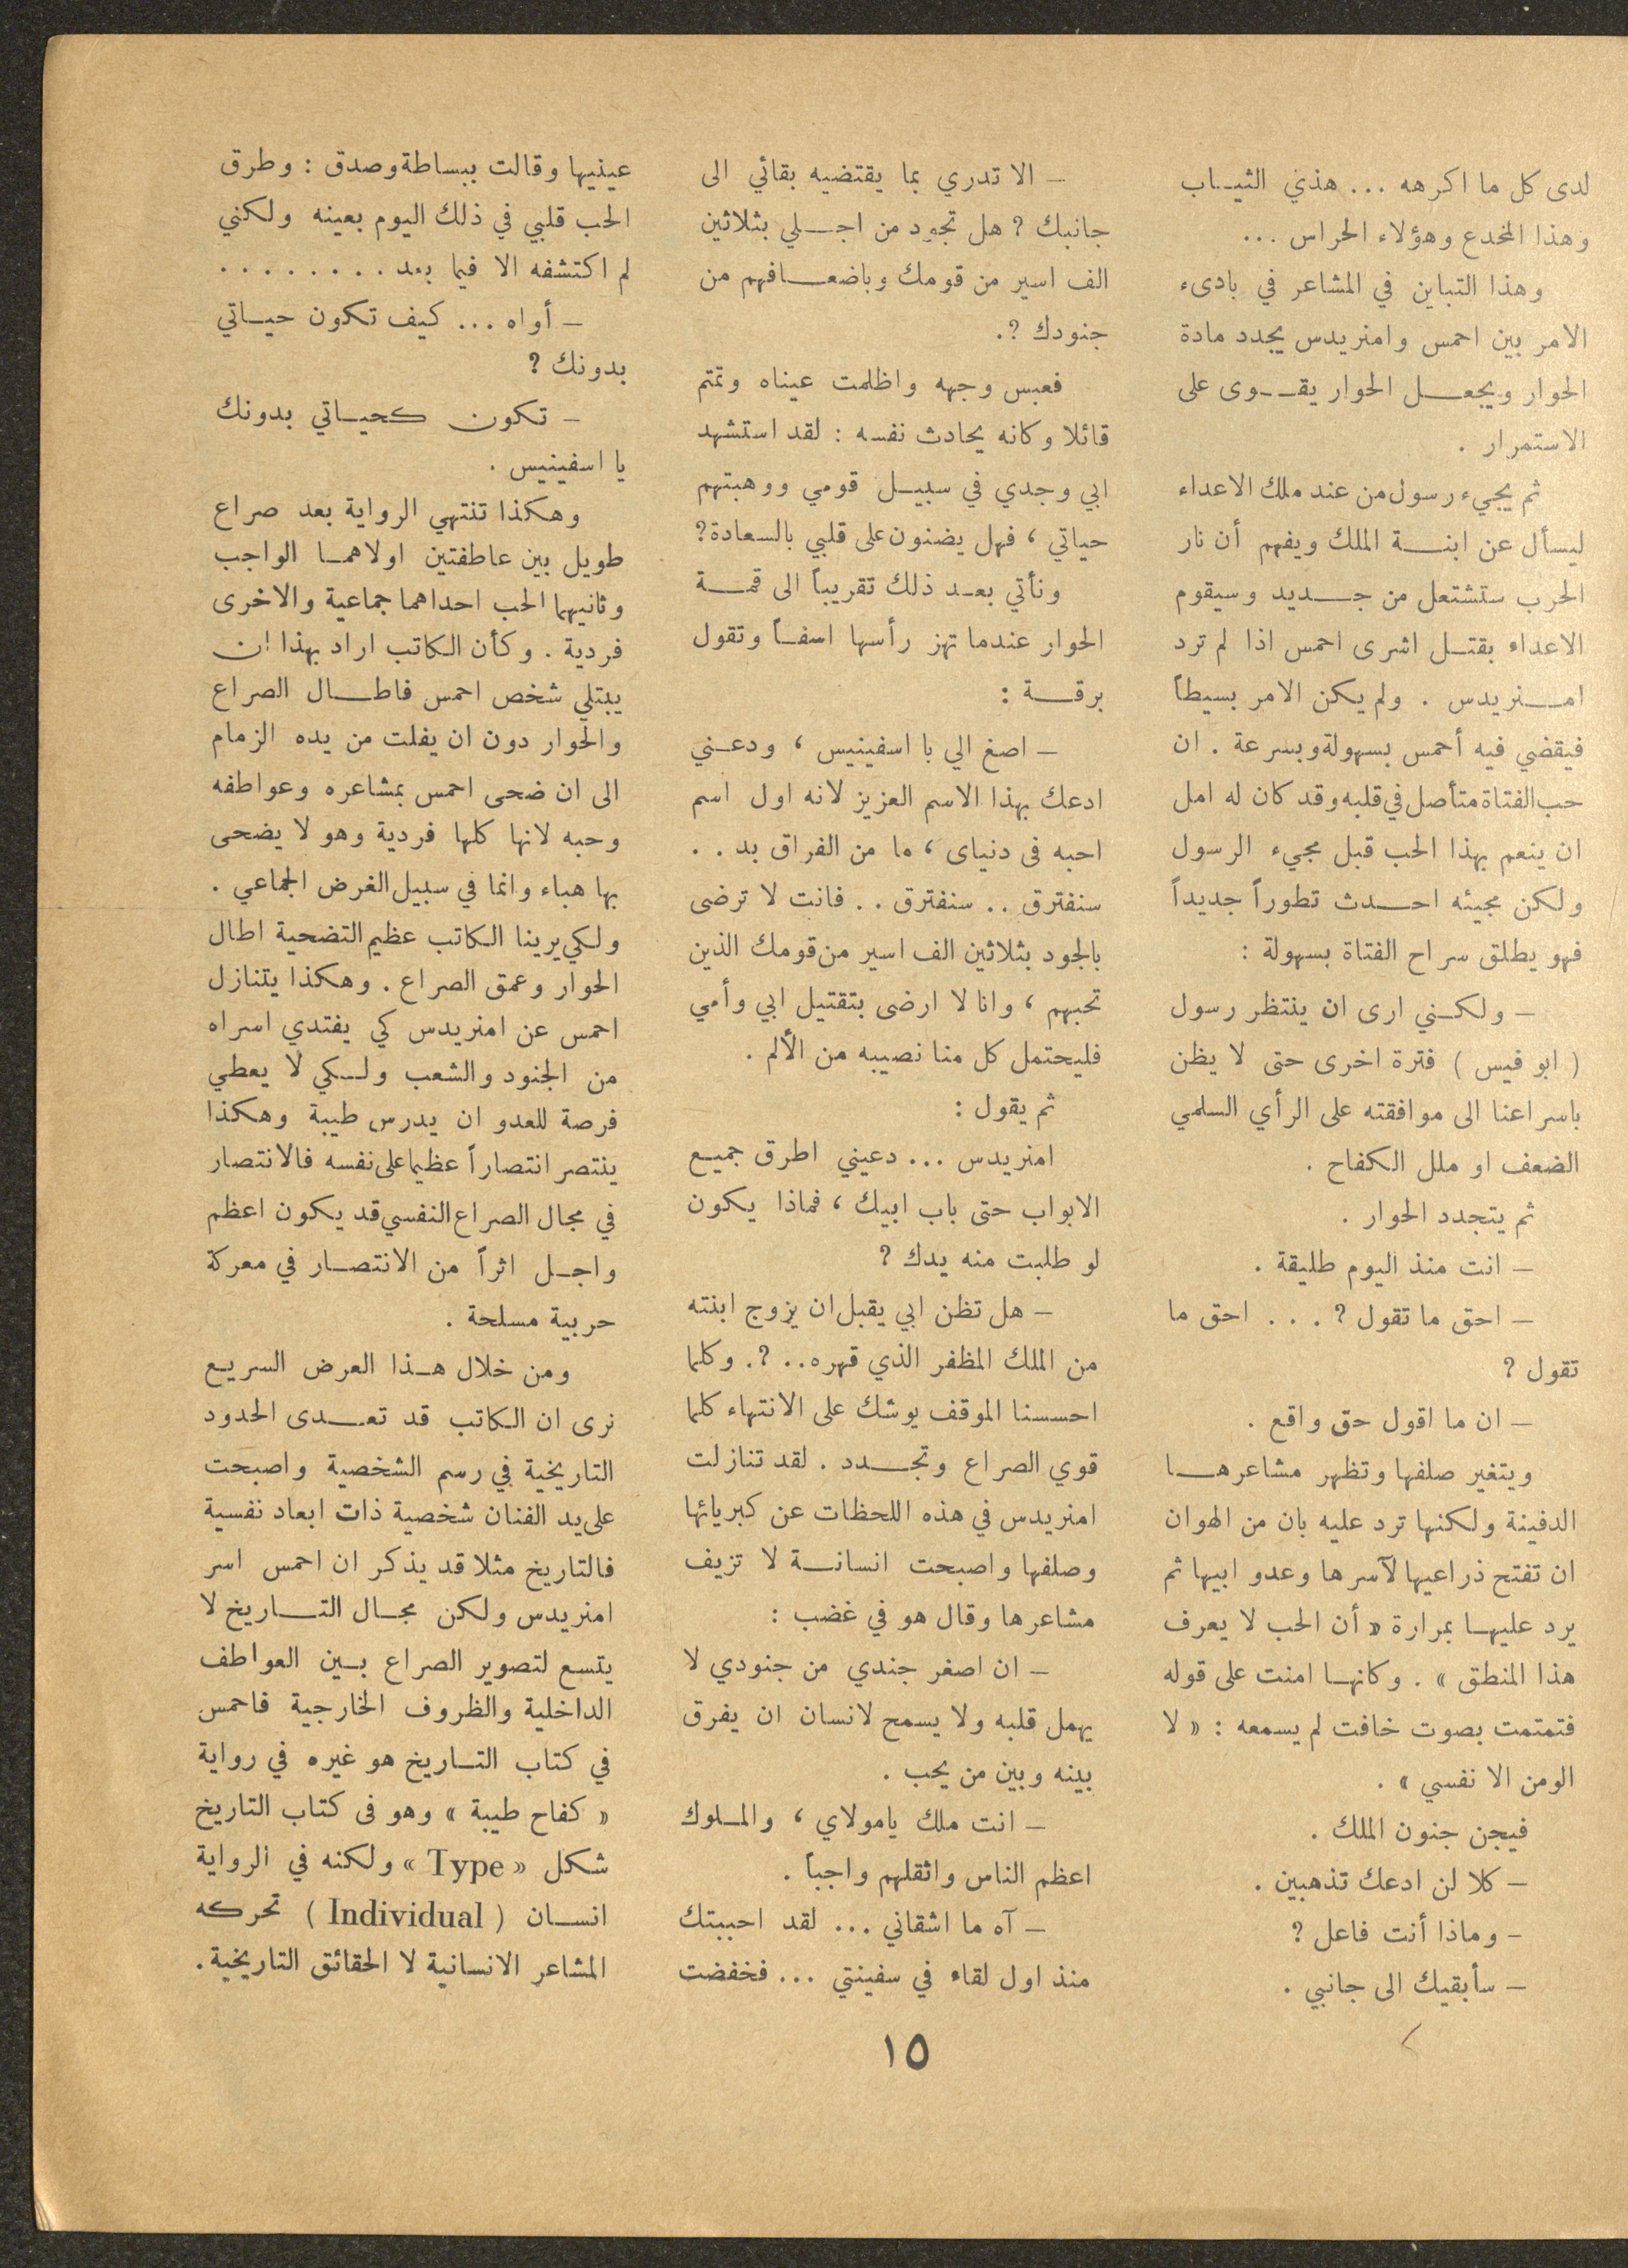 لدى كل ما اكرهه ... هذي الثياب
وهذا المخدع وهؤلاء الحراس ...
وهذا التباين في المشاعر في بادىء
الامر بين احمس وامنريدس يجدد مادة
الحوار ويجعل الحوار يقوى على
الاستمرار .
ثم يجيء رسول من عند ملك الاعداء
ليسأل عن ابنة الملك ويفهم أن نار
الحرب ستشتعل من جديد وسيقوم
الاعداء بقتل اشرى احمس اذا لم ترد
امنريدس . ولم يكن الامر بسيطاً
فيقضي فيه أحمس بسهولة وبسرعة . ان
حب الفتاة متأصل في قلبه وقد كان له امل
ان ينعم بهذا الحب قبل مجيء الرسول
ولكن مجيئه احدث تطوراً جديداً
فهو يطلق سراح الفتاة بسهولة :
– ولكني ارى ان ينتظر رسول
( ابو فيس ) فترة اخرى حتى لا يظن
باسراعنا الى موافقته على الرأي السلمي
الضعف او ملل الكفاح .
ثم يتجدد الحوار .
– انت منذ اليوم طليقة .
– احق ما تقول ? . . . احق ما
تقول ?
– ان ما اقول حق واقع .
ويتغير صلفها وتظهر مشاعرها
الدفينة ولكنها ترد عليه بان من الهوان
ان تفتح ذراعيها لآسرها وعدو ابيها ثم
يرد عليها بمرارة « أن الحب لا يعرف
هذا المنطق » . وكانها امنت على قوله
فتمتمت بصوت خافت لم يسمعه : « لا
الومن الا نفسي » .
فيجن جنون الملك .
– كلا لن ادعك تذهبين .
– وماذا أنت فاعل ?
– سأبقيك الى جانبي .
– الا تدري بما يقتضيه بقائي الى
جانبك ? هل تجود من اجلي بثلاثين
الف اسير من قومك وباضعافهم من
جنودك ?.
فعبس وجهه واظلمت عيناه وتمتم
قائلا وكانه يحادث نفسه : لقد استشهد
ابي وجدي في سبيل قومي ووهبتهم
حياتي ، فهل يضنون على قلبي بالسعادة?
ونأتي بعد ذلك تقريباً الى قمة
الحوار عندما تهز رأسها اسفاً وتقول
برقة :
– اصغ الي با اسفينيس ، ودعني
ادعك بهذا الاسم العزيز لانه اول اسم
احبه فى دنياى ، ما من الفراق بد . .
سنفترق .. سنفترق .. فانت لا ترضى
بالجود بثلاثين الف اسير من قومك الذين
تحبهم ، وانا لا ارضى بتقتيل ابي وأمي
فليحتمل كل منا نصيبه من الألم .
ثم يقول :
امنريدس ... دعيني اطرق جميع
الابواب حتى باب ابيك ، فماذا يكون
لو طلبت منه يدك ?
– هل تظن ابي يقبل ان يزوج ابنته
من الملك المظفر الذي قهره.. ?. وكلما
احسسنا الموقف يوشك على الانتهاء كلما
قوي الصراع وتجدد . لقد تنازلت
امنريدس في هذه اللحظات عن كبريائها
وصلفها واصبحت انسانة لا تزيف
مشاعرها وقال هو في غضب :
– ان اصغر جندي من جنودي لا
يهمل قلبه ولا يسمح لانسان ان يفرق
بينه وبين من يحب .
– انت ملك يامولاي ، والملوك
اعظم الناس واثقلهم واجباً .
– آه ما اشقاني ... لقد احببتك
منذ اول لقاء في سفينتي ... فخفضت
عينيها وقالت ببساطة وصدق : وطرق
الحب قلبي في ذلك اليوم بعينه ولكني
لم اكتشفه الا فيما بعد . . . . . . . .
– أواه ... كيف تكون حياتي
بدونك ?
– تكون كحياتي بدونك
يا اسفينيس .
وهكذا تنتهي الرواية بعد صراع
طويل بين عاطفتين اولاهما الواجب
وثانيهما الحب احداهما جماعية والاخرى
فردية . وكأن الكاتب اراد بهذا ان
يبتلي شخص احمس فاطال الصراع
والحوار دون ان يفلت من يده الزمام
الى ان ضحى احمس بمشاعره وعواطفه
وحبه لانها كلها فردية وهو لا يضحى
بها هباء وانما في سبيل الغرض الجماعي .
ولكي يرينا الكاتب عظيم التضحية اطال
الحوار وعمق الصراع . وهكذا يتنازل
احمس عن امنريدس كي يفتدي اسراه
من الجنود والشعب ولكي لا يعطي
فرصة للعدو ان يدرس طيبة وهكذا
ينتصر انتصاراً عظيما على نفسه فالانتصار
في مجال الصراع النفسي قد يكون اعظم
واجل اثراً من الانتصار في معركة
حربية مسلحة .
ومن خلال هذا العرض السريع
نرى ان الكاتب قد تعدى الحدود
التاريخية في رسم الشخصية واصبحت
على يد الفنان شخصية ذات ابعاد نفسية
فالتاريخ مثلا قد يذكر ان احمس اسر
امنريدس ولكن مجال التاريخ لا
يتسع لتصوير الصراع بين العواطف
الداخلية والظروف الخارجية فاحمس
في كتاب التاريخ هو غيره في رواية
« كفاح طيبة » وهو فى كتاب التاريخ
شكل « Type » ولكنه في الرواية
انسان ( Individual ) تحركه
المشاعر الانسانية لا الحقائق التاريخية.
١٥